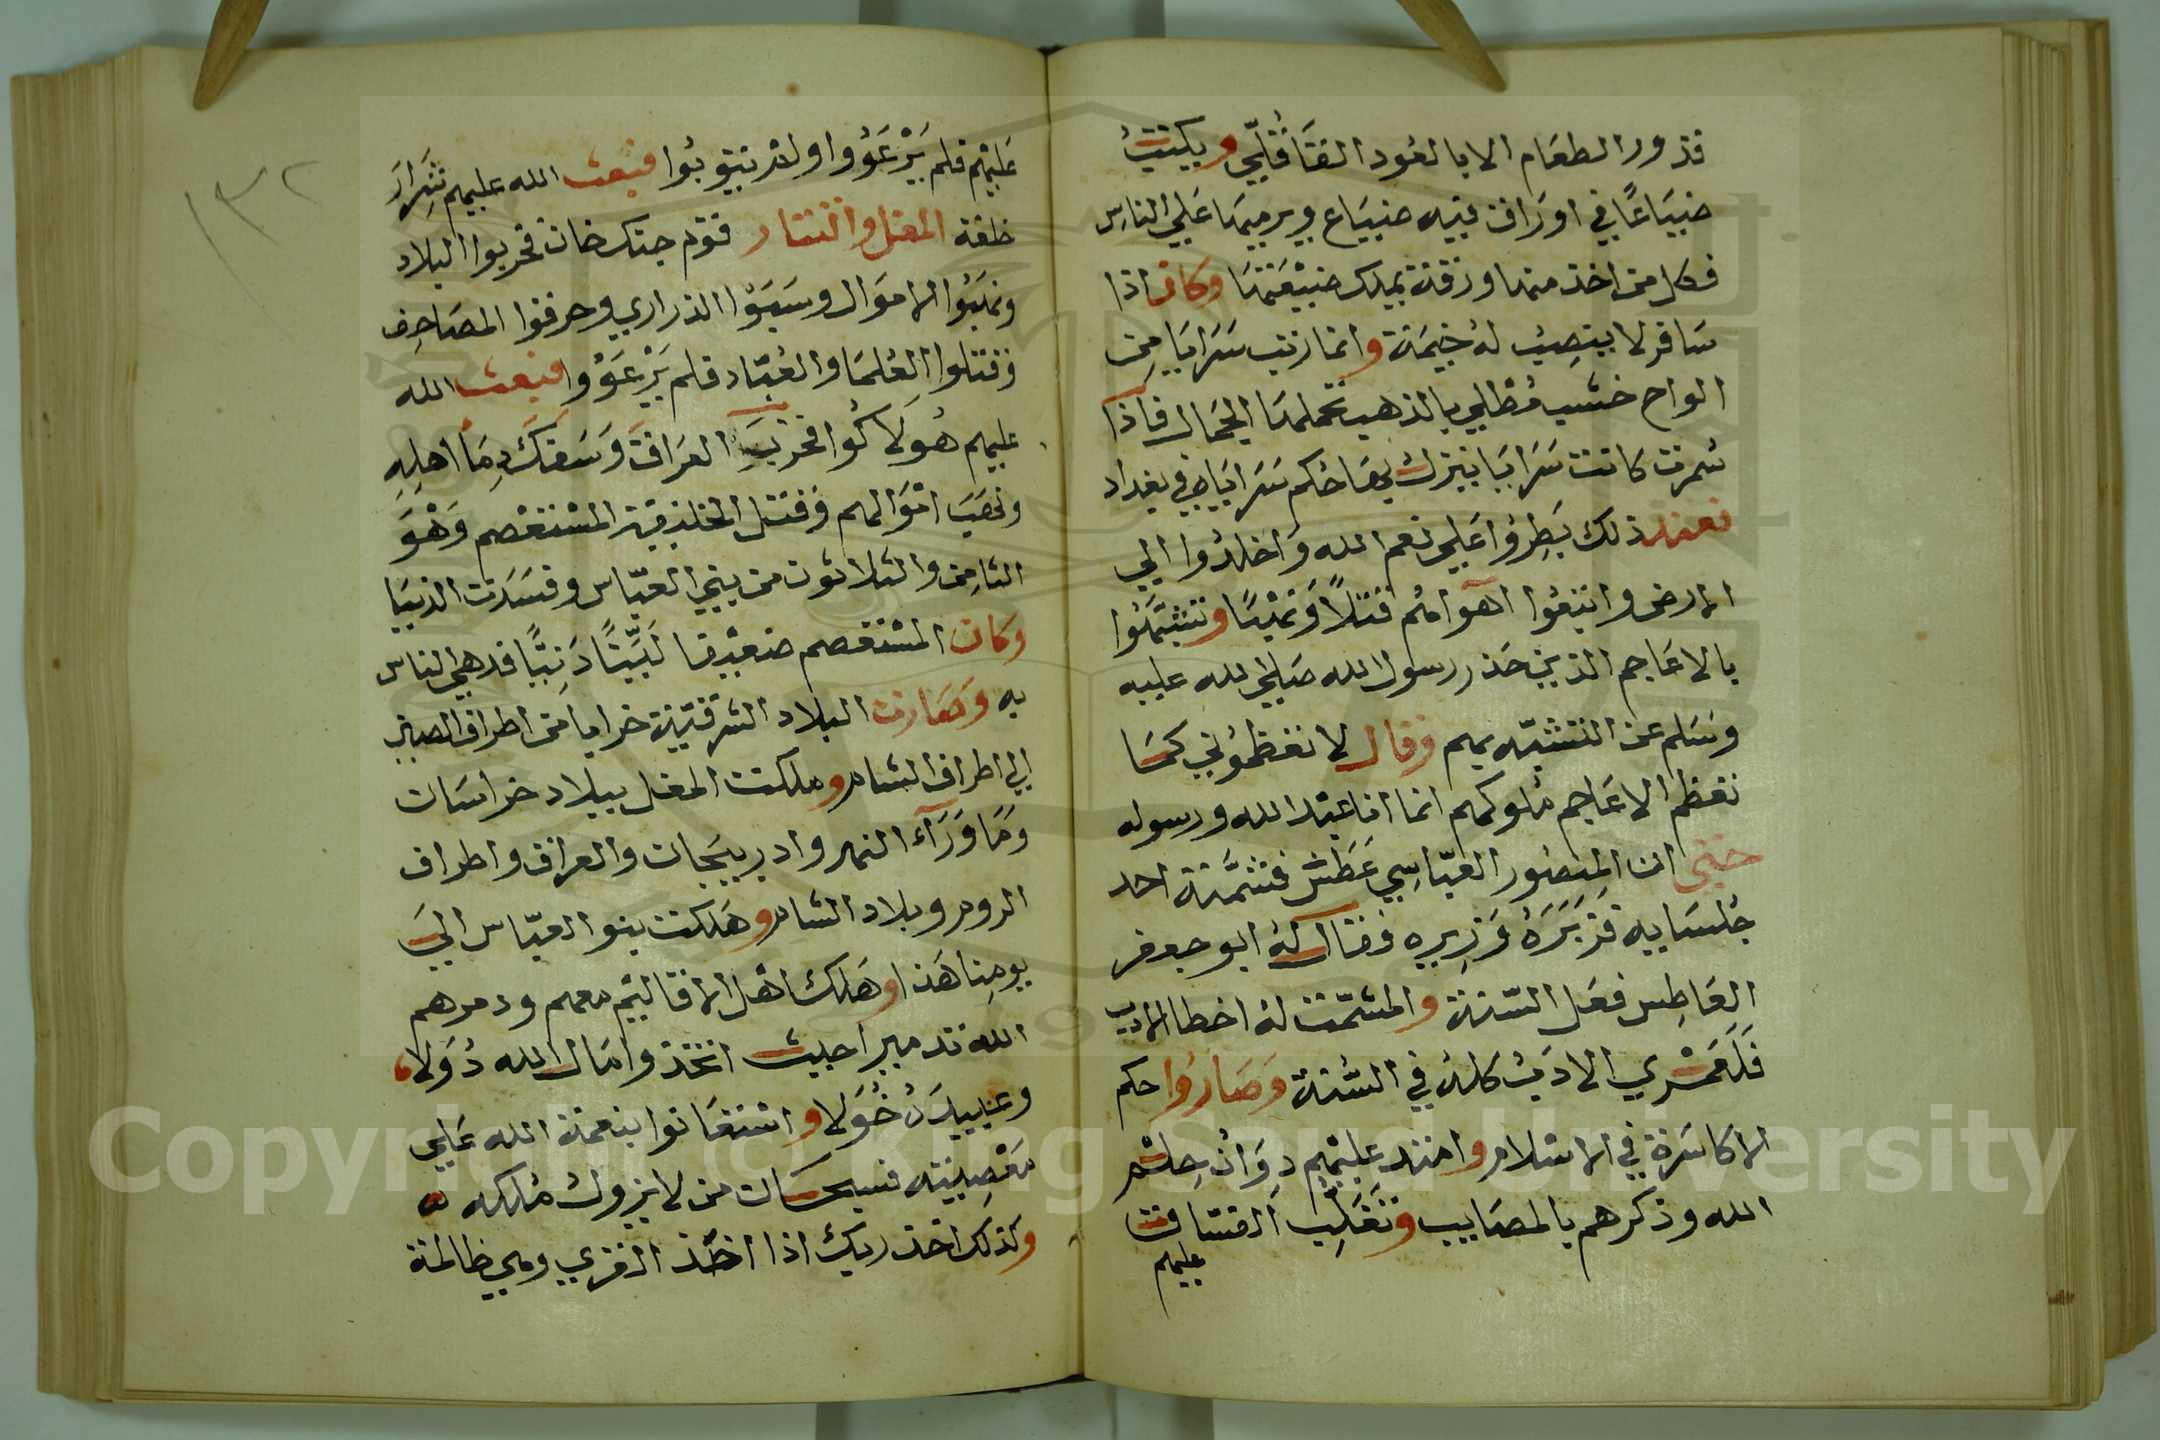 قدور الطعام الا بالعود القاقلي ويكتب
ضياعا في اوراق فيه ضياع ويرميها علي الناس
فكل من اخذ منها ورقة يملك ضيعتها وكان اذا
سافر لا ينصب له خيمة وانما رتب سرايا من
الواح خشب مطلي بالذهب تحملها الجمال فاذا
سمرت كانت سرايا ينزل بها حكم سراياه في بغداد
فعند ذلك بطروا علي نعم الله واخلدوا الي
الارض واتبعوا اهوآهم قتلا ونهبا وتشبهوا
بالاعاجم الذين حذر رسول الله صلي الله عليه
وسلم عن التشبه بهم وقال لا تعظموني كما
تعظم الاعاجم ملوكهم انما انا عبد الله ورسوله
حتي ان المنصور العباسي عطش فشمته احد
جلسايه فزبره وزيره فقال له ابو جعفر
العاطس فعل السنة والمشمت له اخطا الادب
فلعمري الادب كله في السنة وصاروا حكم
الاكاسرة في الاسلام وامتد عليهم دوان حلم
الله وذكرهم بالمصايب وتغلب الفساق
عليهم
١٣٢
عليهم فلم يرعووا ولم يتوبوا فبعث الله عليهم شرار
خلقه المغل والتتار قوم جنكز خان فخربوا البلاد
ونهبوا الاموال وسبوا الذراري وحرقوا المصاحف
وقتلوا العلما والعباد فلم يرعووا فبعث الله
عليهم هولاكوا فخرب العراق وسفك دما اهله
ونهب اموالهم وقتل الخليفة المستعصم وهو
الثامن والثلاثون من بني العباس وفسدت الدنيا
وكان المستعصم ضعيفا لينا دنيا قد هي الناس
به وصارت البلاد الشرقية خرابا من اطراف الصين
الي اطراف الشام وملكت المغل ببلاد خراسان
وما ورآء النهر وادربيجان والعراق واطراف
الروم وبلاد الشام وهلكت بنوا العباس الي
يومنا هذا وهلك اهل الاقاليم معهم ودمرهم
الله تدميرا حيث اتخذوا مال الله دولا
وعبيده خولا واستعانوا بنعمة الله علي
معصيته فسبحان من لا يزول ملكه
وكذلك اخذ ربك اذا اخذ القري وهي ظالمة
Copyright © King Saud University